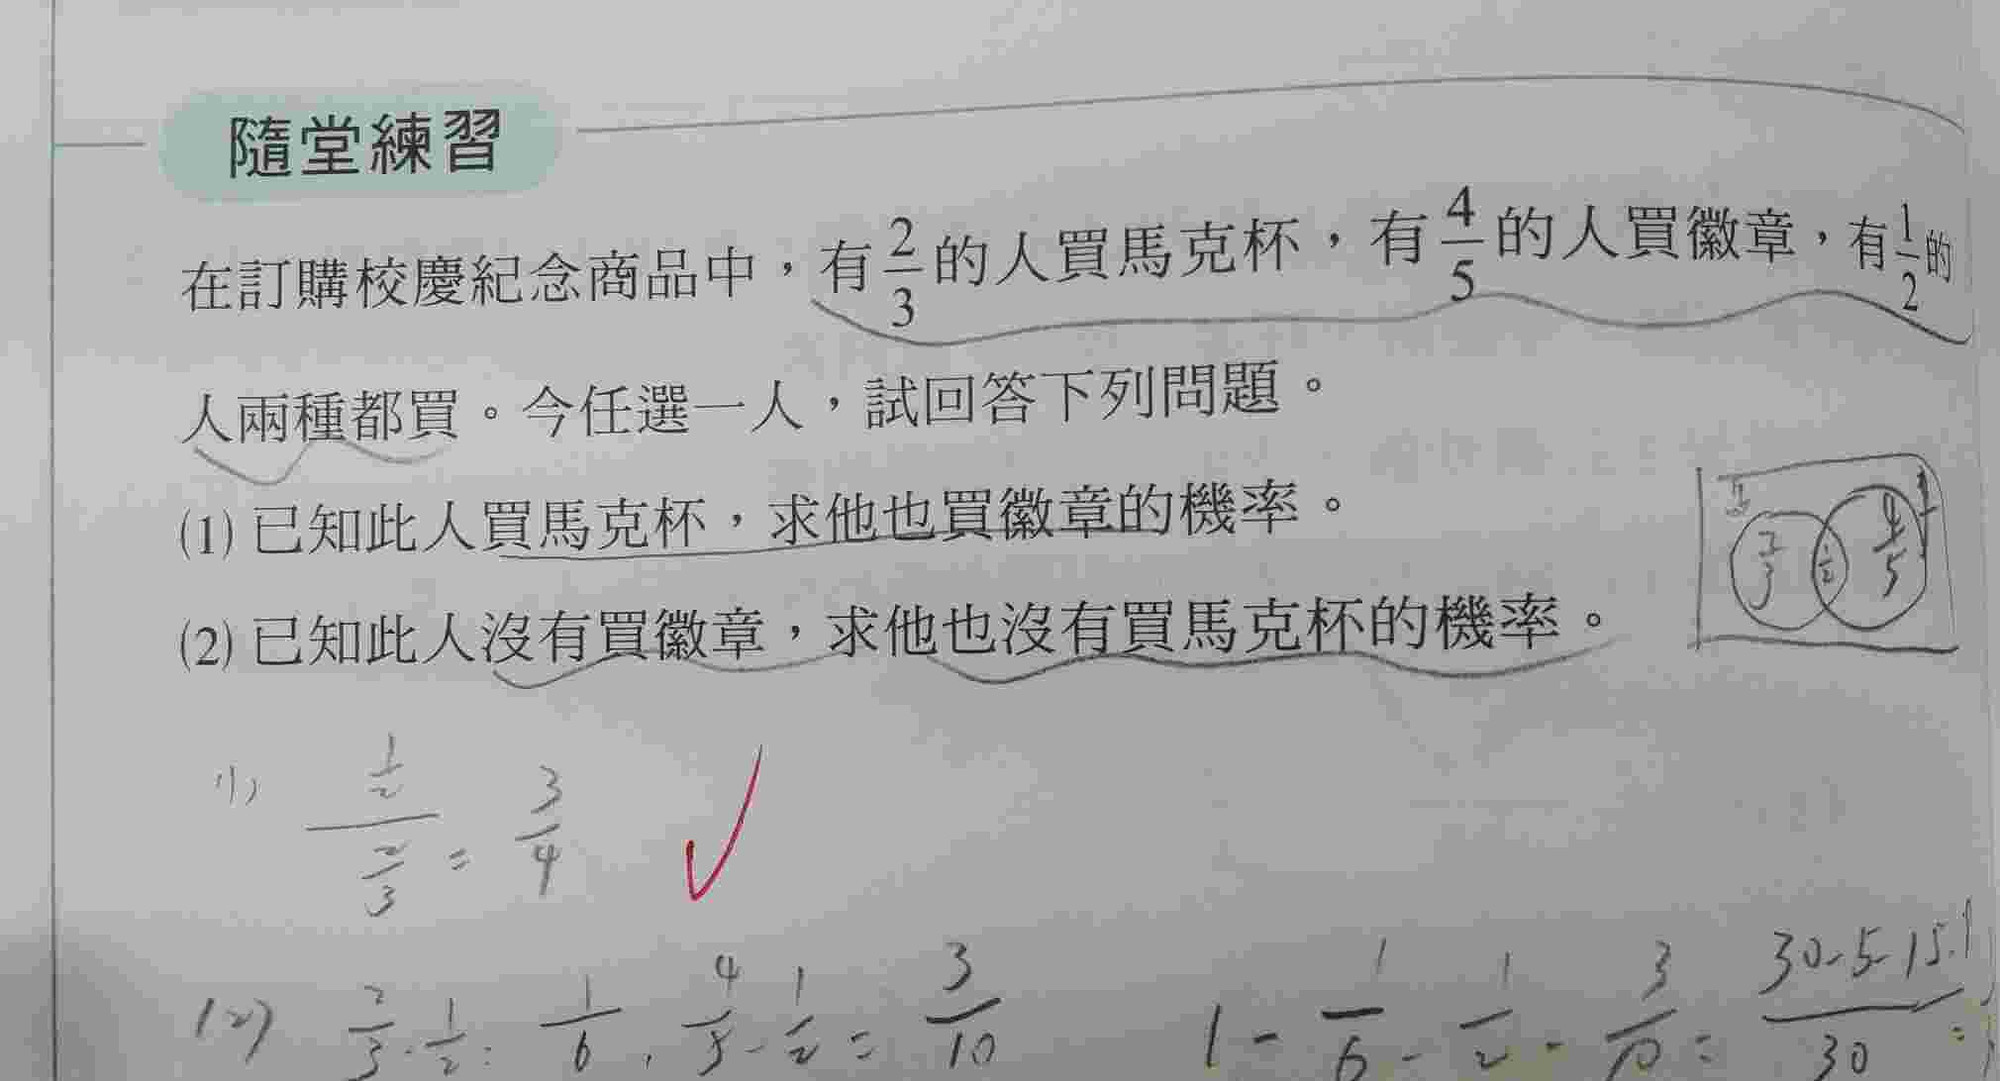 隨堂練習
在訂購校慶紀念商品中，有2/3的人買馬克杯，有4/5的人買徽章，有1/2的
人兩種都買。今任選一人，試回答下列問題。
(1) 已知此人買馬克杯，求他也買徽章的機率。
(2) 已知此人沒有買徽章，求他也沒有買馬克杯的機率。
2/3 1/2 4/5
(1) (1/2)/(2/3) = 3/4
(2) 2/3 - 1/2 = 1/6, 4/5 - 1/2 = 3/10 1 - 1/6 - 1/2 - 3/10 = 30-5-15- /30 =